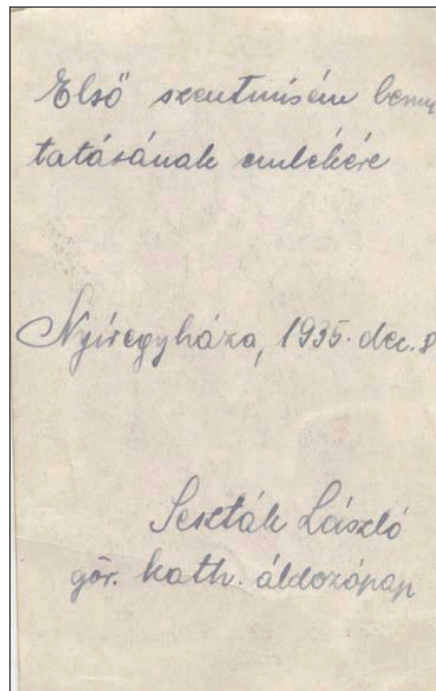 Első szentmisém bemu
tatásának emlékére
Nyíregyháza, 1935. dec. 8
Seszták László
gör. kath. áldozópap